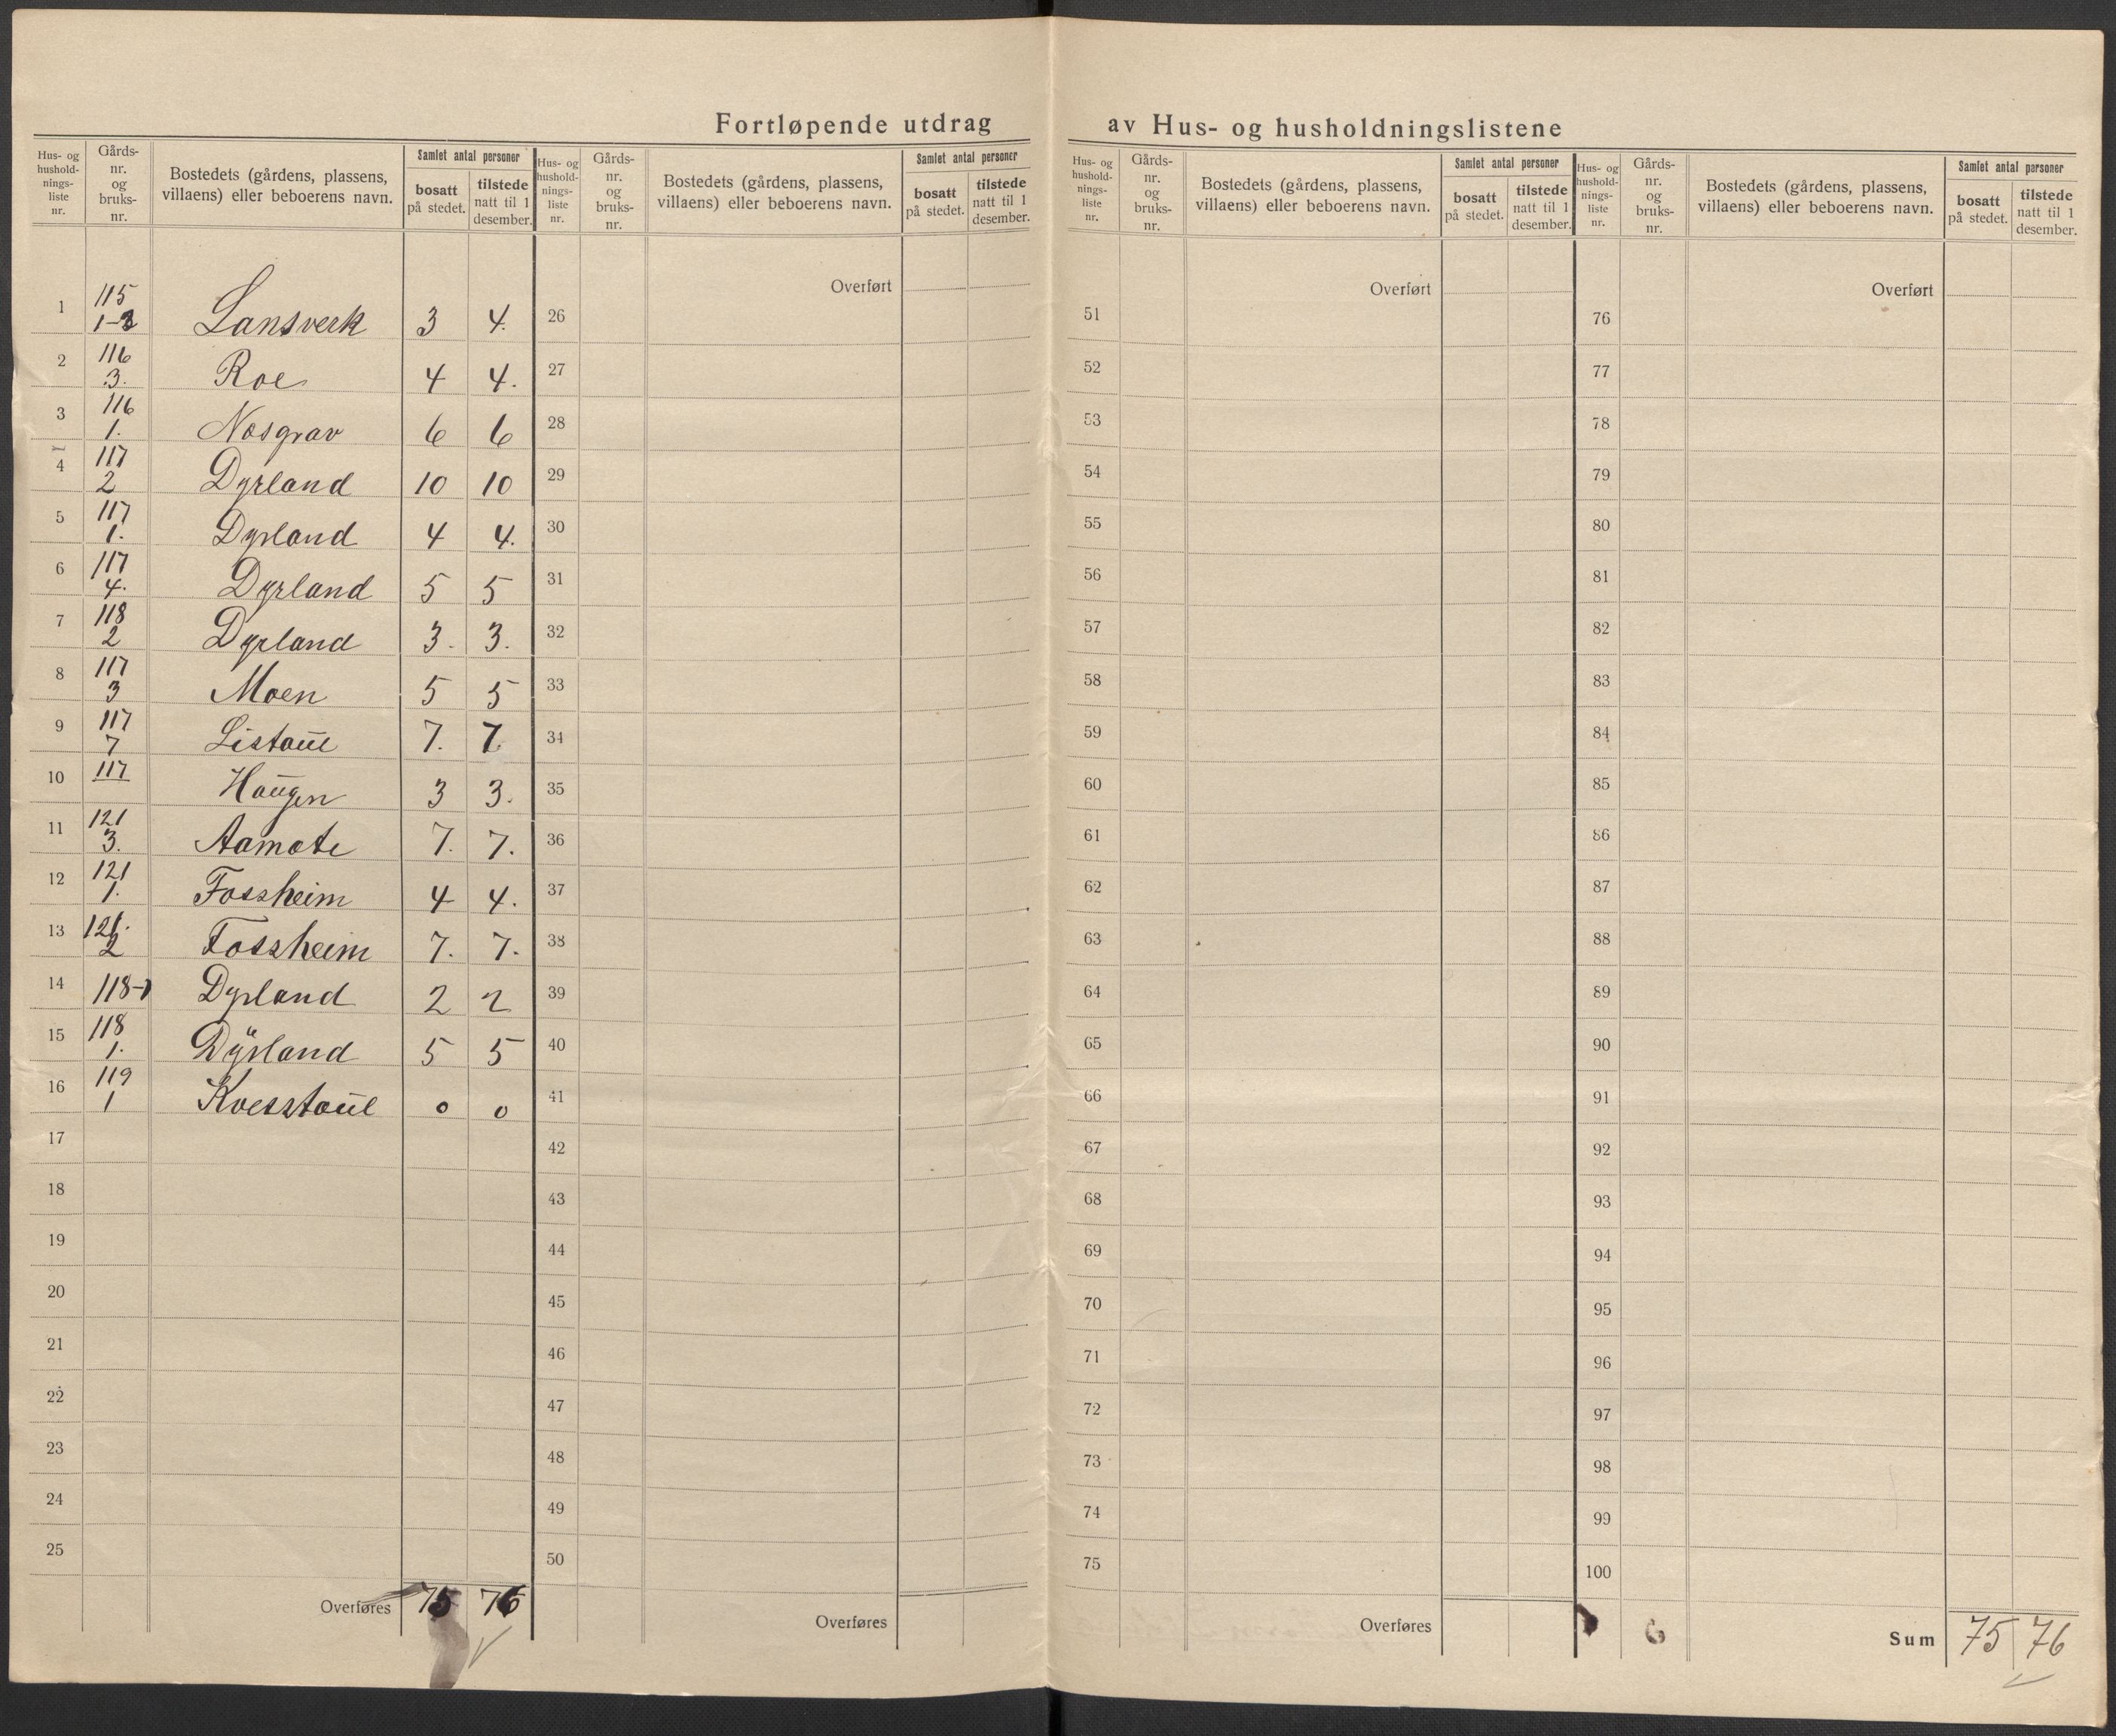 Fortløpende utdrag av Hus- og husholdningslistene
Hus- og hushold-nings-liste nr. Gårds-nr. og bruks-nr. Bostedets (gårdens, plassens, villaens) eller beboerens navn. Samlet antal personer bosatt på stedet. tilstede natt til 1 desember.
Hus- og hushold-nings-liste nr. Gårds-nr. og bruks-nr. Bostedets (gårdens, plassens, villaens) eller beboerens navn. Samlet antal personer bosatt på stedet. tilstede natt til 1 desember.
Hus- og hushold-nings-liste nr. Gårds-nr. og bruks-nr. Bostedets (gårdens, plassens, villaens) eller beboerens navn. Samlet antal personer bosatt på stedet. tilstede natt til 1 desember.
Hus- og hushold-nings-liste nr. Gårds-nr. og bruks-nr. Bostedets (gårdens, plassens, villaens) eller beboerens navn. Samlet antal personer bosatt på stedet. tilstede natt til 1 desember.
Overført Overført Overført
1 115 Lansverk 3 4. 26 51 76
2 116 3. Roe 4 4. 27 52 77
3 116 1. Nosgrav 6 6 28 53 78
4 117 2 Dyrland 10 10 29 54 79
5 117 1. Dyrland 4 4. 30 55 80
6 117 4. Dyrland 5 5 31 56 81
7 118 2 Dyrland 3. 3. 32 57 82
8 117 3 Moen 5 5 33 58 83
9 117 7 Listaūl 7. 7 34 59 84
10 117 Haūgen 3 3. 35 60 85
11 121 3. Aamote 7. 7. 36 61 86
12 121 1. Fossheim 4 4. 37 62 87
13 121. 2 Fossheim 7. 7. 38 63 88
14 118-1 Dyrland 2 2 39 64 89
15 118 1. Dÿrland 5 5 40 65 90
16 119 1 Kvesstaūl 0 0 41 66 91
17 42 67 92
18 43 68 93
19 44 69 94
20 45 70 95
21 46 71 96
22 47 72 97
23 48 73 98
24 49 74 99
25 50 75 100
Overføres 75 76 Overføres Overføres Sum 75 76